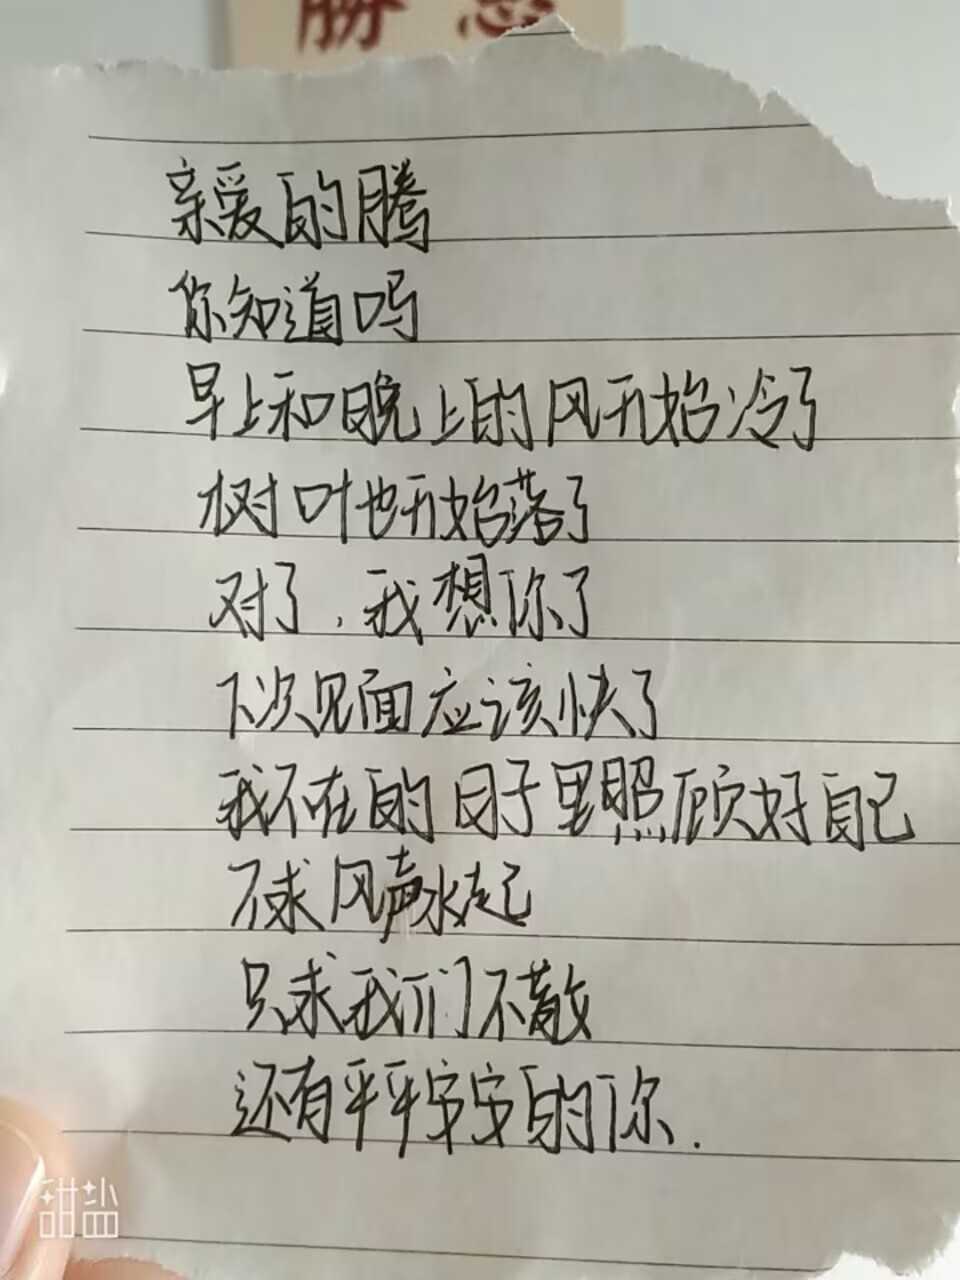 亲爱的腾
你知道吗
早上和晚上的风开始冷了
树叶也开始落了
对了，我想你了
下次见面应该快了
我不在的日子里照顾好自己
不求风声水起
只求我们不散
还有平平安安的你.
甜盐